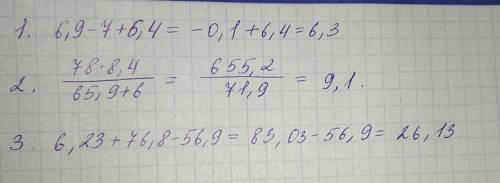 1. 6,9-7+6,4 = -0,1+6,4=6,3
2. 78·8,4 / 65,9+6 = 655,2 / 71,9 = 9,1.
3. 6,23+76,8-56,9= 83,03-56,9= 26,13